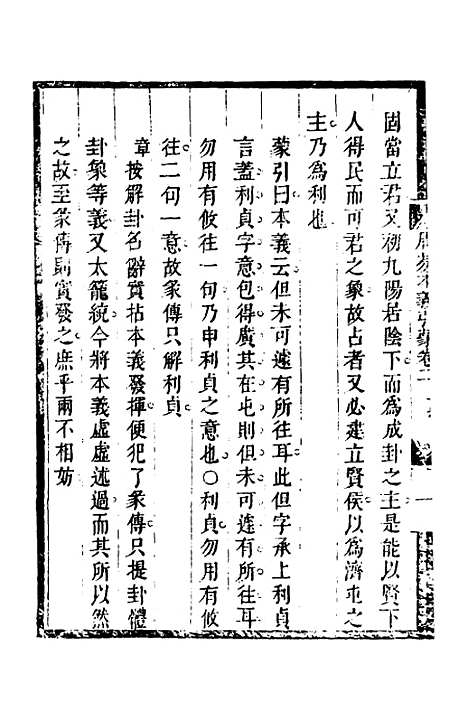 固當立君又初九陽居陰下而爲成卦之主是能以賢下
人得民而可君之象故占者又必建立賢侯以爲濟屯之
主乃爲利也
蒙引曰本義云但未可遽有所往耳此但字承上利貞
言蓋利貞字意包得廣其在屯則但未可遽有所往耳
勿用有攸往一句乃申利貞之意也○利貞勿用有攸
往二句一意故彖傳只解利貞
章按解卦名辭實拈本義發揮便犯了彖傳只提卦體
卦象等義又太籠統今將本義虛虛述過而其所以然
之故至彖傳歸實發之庶乎兩不相妨